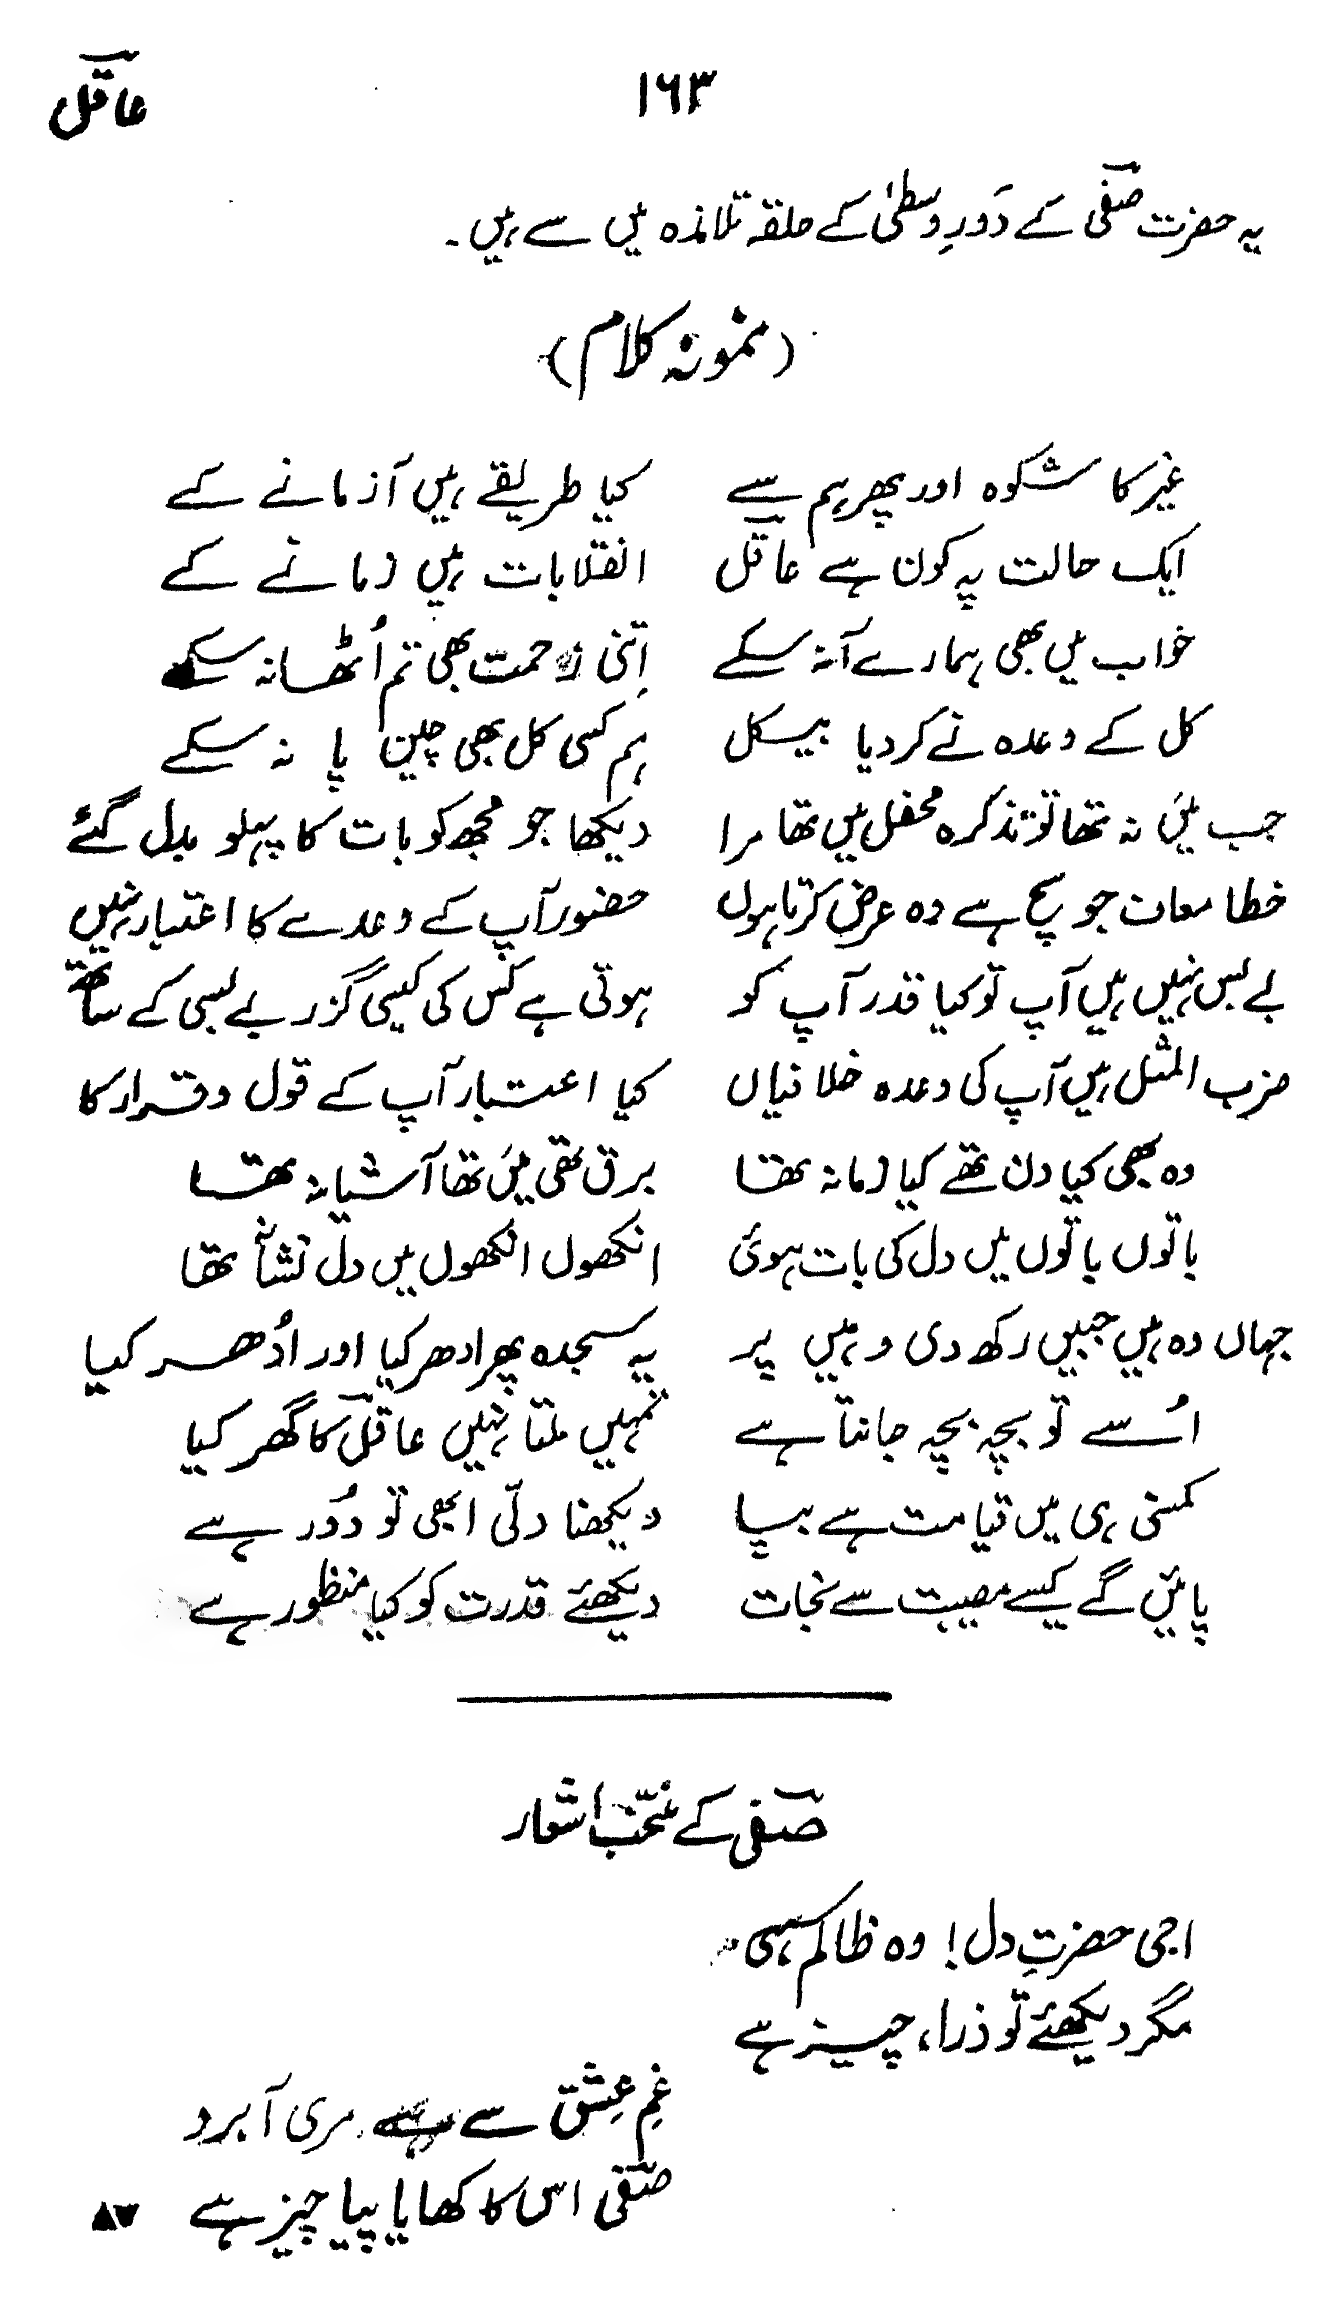 عاقل
۱۶۳
یہ حضرت صفیؔ کے دَورِ وسطیٰ کے حلقہ تلامذہ میں سے ہیں۔
(نمونہ کلام)
غیر کا شکوہ اور پھر ہم سے کیا طریقے ہیں آزمانے کے
ایک حالت پہ کون ہے عاقلؔ انقلابات ہیں زمانے کے
خواب میں بھی ہمارے آ نہ سکے اِتنی زحمت بھی تم اُٹھا نہ سکے
کل کے وعدہ نے کردیا بیکل ہم کسی کل بھی چین پا نہ سکے
جب میَں نہ تھا تو تذکرہ محفل میں تھا مرا دیکھا جو مجھ کو بات کا پہلو بدل گئے
خطا معاف جو سچ ہے وہ عرض کرتا ہوں حضور آپ کے وعدے کا اعتبار نہیں
بے بس نہیں ہیں آپ تو کیا قدر آپ کو ہوتی ہے کس کی کیسی گزر بے بسی کے ساتھ
ضرب المثل ہیں آپ کی وعدہ خلافیاں کیا اعتبار آپ کے قول و قرار کا
وہ بھی کیا دن تھے کیا زمانہ تھا برق تھی میَں تھا آشیانہ تھا
باتوں باتوں میں دل کی بات ہوئی انکھوں انکھوں میں دل نشانہ تھا
جہاں وہ ہیں جبیں رکھ دی وہیں پر یہ سجدہ پھر ادھر کیا اور اُدھر کیا
اُسے تو بچہ بچہ جانتا ہے تمہیں ملتا نہیں عاقلؔ کا گھر کیا
کمسنی ہی میں قیامت ہے بپا دیکھنا دلّی ابھی تو دُور ہے
پائیں گے کیسے مصیبت سے نجات دیکھئے قدرت کو کیا منظور ہے
صفیؔ کے منتخب اشعار
اجی حضرتِ دل! وہ ظالم سہی
مگر دیکھئے تو ذرا، چیز ہے
غمِ عِشق سے ہے مری آبرو
صفیؔ اس کا کھایا پیا چیز ہے